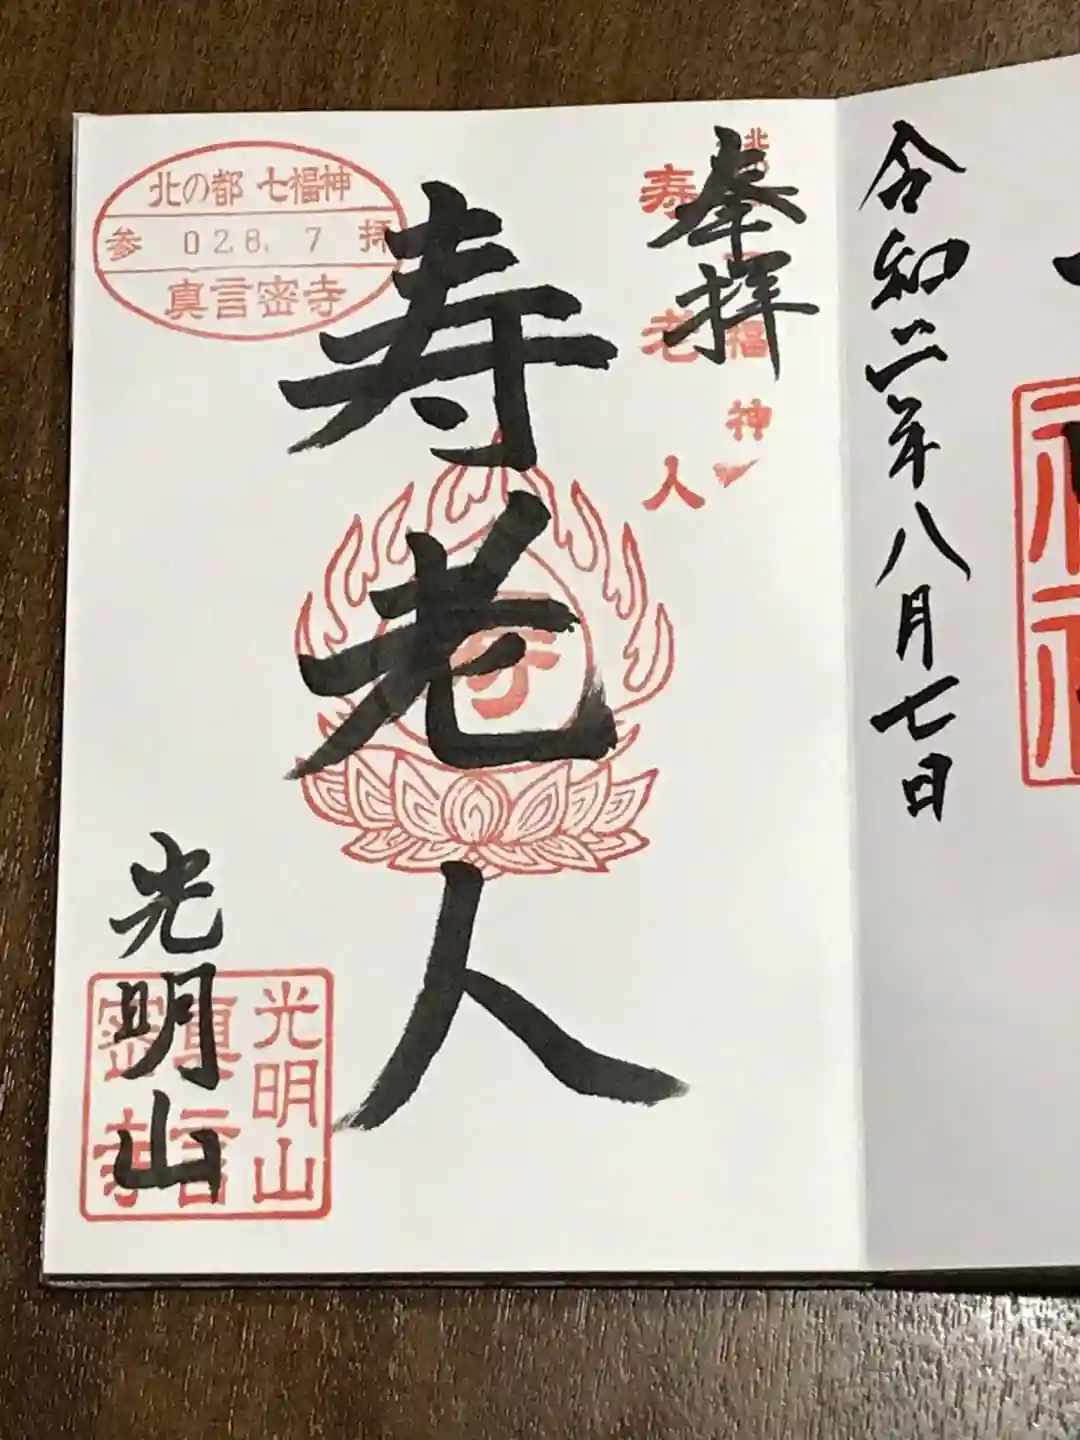 令和二年八月七日
奉拝
寿老人
寿老人
北の都 七福神
参 028. 7 拝
真言密寺
光明山
光明山
真言
密寺